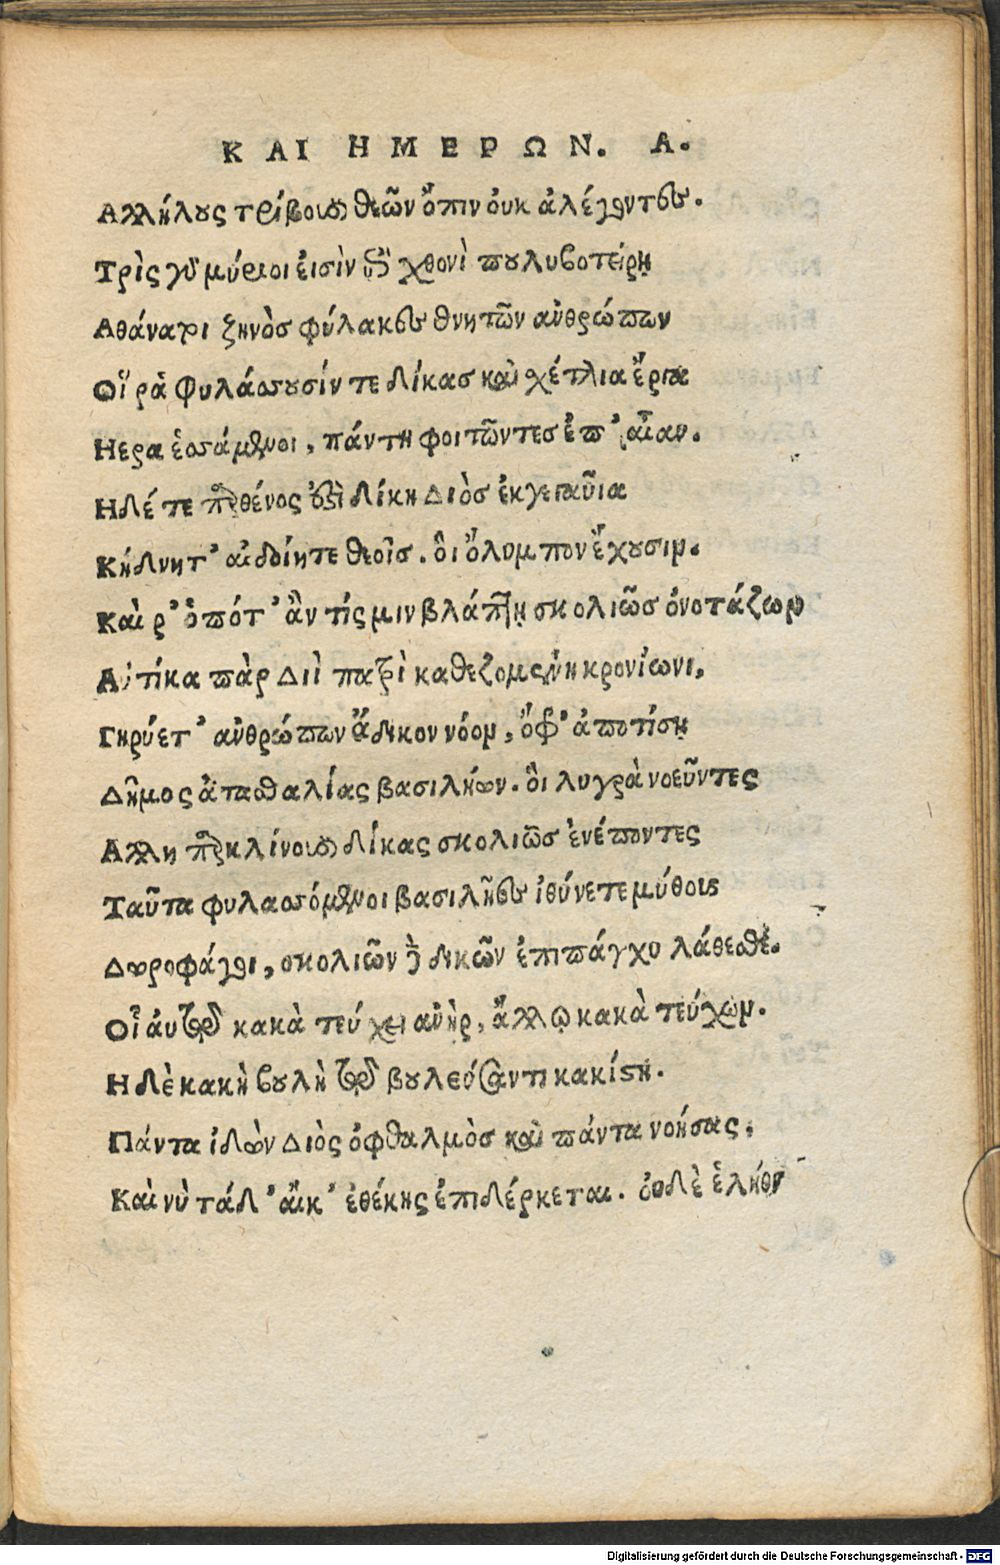 ΚΑΙ ΗΜΕΡΩΝ. Α.
Αλλήλους τρίβουσι θεῶν ὄπιν ὀυκ ἀλέγοντες.
Τρὶς γὰρ μύριοι ἐισὶν ἐπὶ χθονὶ πουλυβοτείρῃ
Αθάνατοι ζηνὸς φύλακες θνητῶν ἀνθρώπων
Οἵ ῥα φυλάσσουσίν τε δίκας καὶ χέτλια ἔργα
Ηερα ἑσσάμενοι, πάντη φοιτῶντες ἐπ' αἶαν.
Ηδέ τε παρθένος ἐστὶ δίκη Διὸς ἐκγεγαῦια
Κήδνητ' αἰδοίητε θεοῖς. ὃι ὄλυμπον ἔχουσιν.
Καὶ ρ' ὁπότ' ἂν τίς μιν βλάπτῃ σκολιῶς ὀνοτάζων
Αυτίκα πὰρ Διὶ πατρὶ καθεζομένη κρονίωνι,
Γηρύετ' ἀνθρώπων ἄδικον νόον, ὄφρ' ἀποτίσῃ
Δῆμος ἀτασθαλίας βασιλήων. ὃι λυγρὰ νοεῦντες
Αλλη παρκλίνουσι δίκας σκολιῶς ἐνέποντες
Ταῦτα φυλασσόμενοι βασιλῆες ἰθύνετε μύθους
Δωροφάγοι, σκολιῶν δὲ δικῶν ἐπιπάγχυ λάθεσθε.
Οἷ ἀυτῷ κακὰ τεύχει ἀνὴρ, ἄλλῳ κακὰ τεύχων.
Η δὲ κακὴ βουλὴ τῷ βουλεύσαντι κακίστη.
Πάντα ἰδὼν Διὸς ὀφθαλμὸς καὶ πάντα νοήσας,
Καὶ νὺ τάδ' αἴκ' ἐθέλῃς ἐπιδέρκεται. ὀυδὲ ἑ λήθει
Digitalisierung gefördert durch die Deutsche Forschungsgemeinschaft - DFG